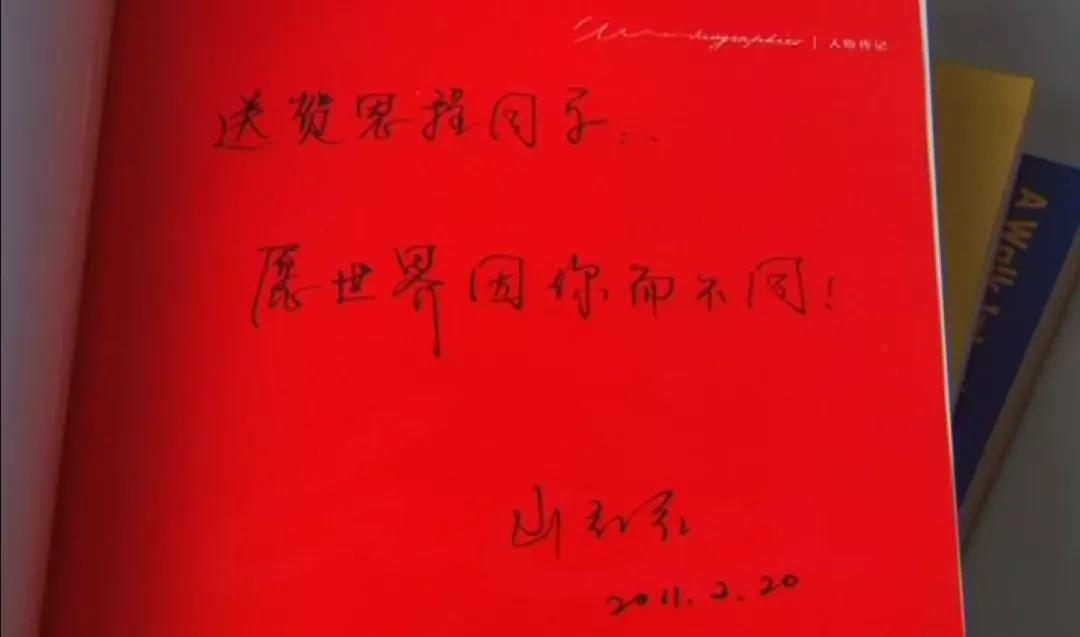 biographies | 人物传记
送贺思程同学：
愿世界因你而不同！
2011.2.20
A Walk